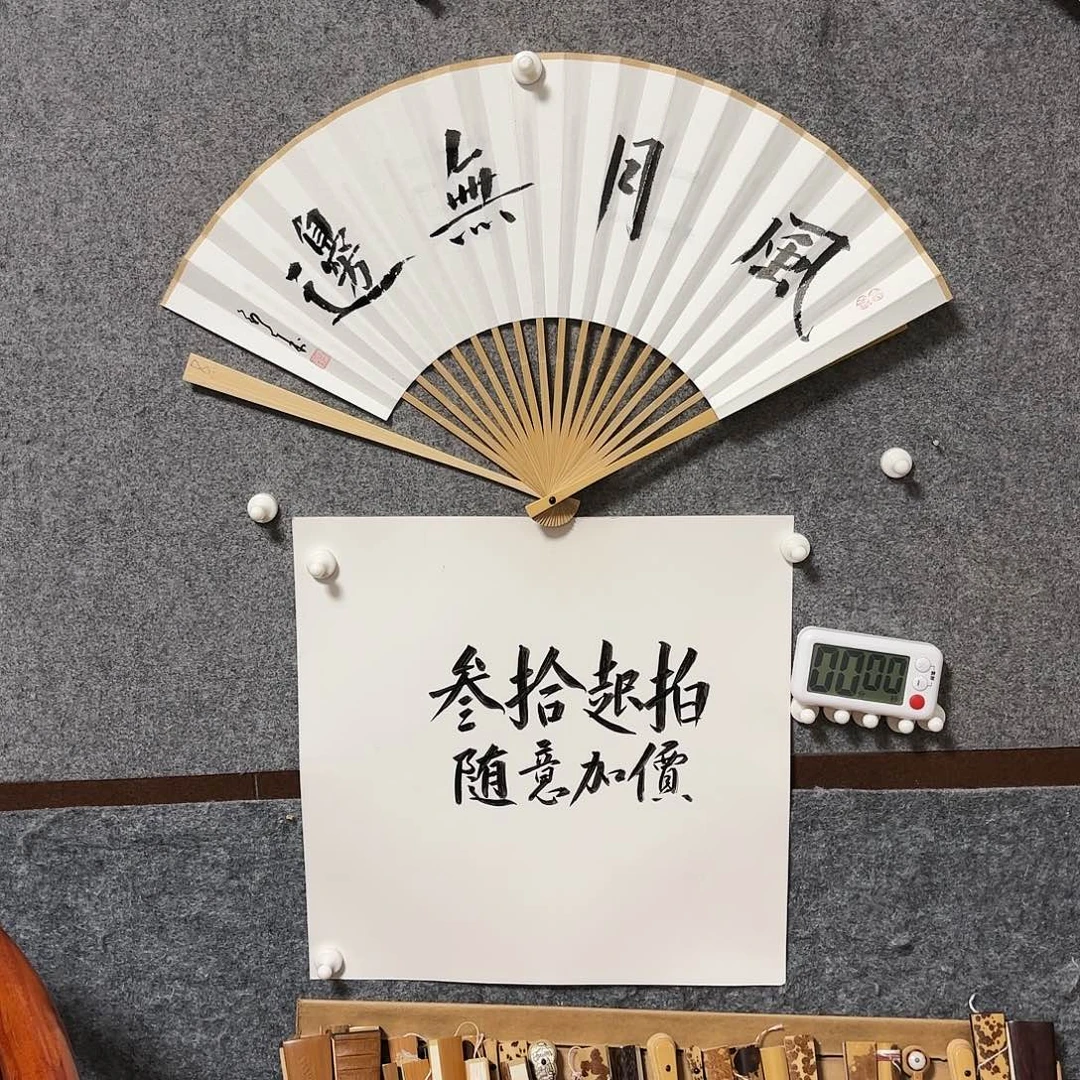 風月無邊
叁拾起拍
随意加價
00:00